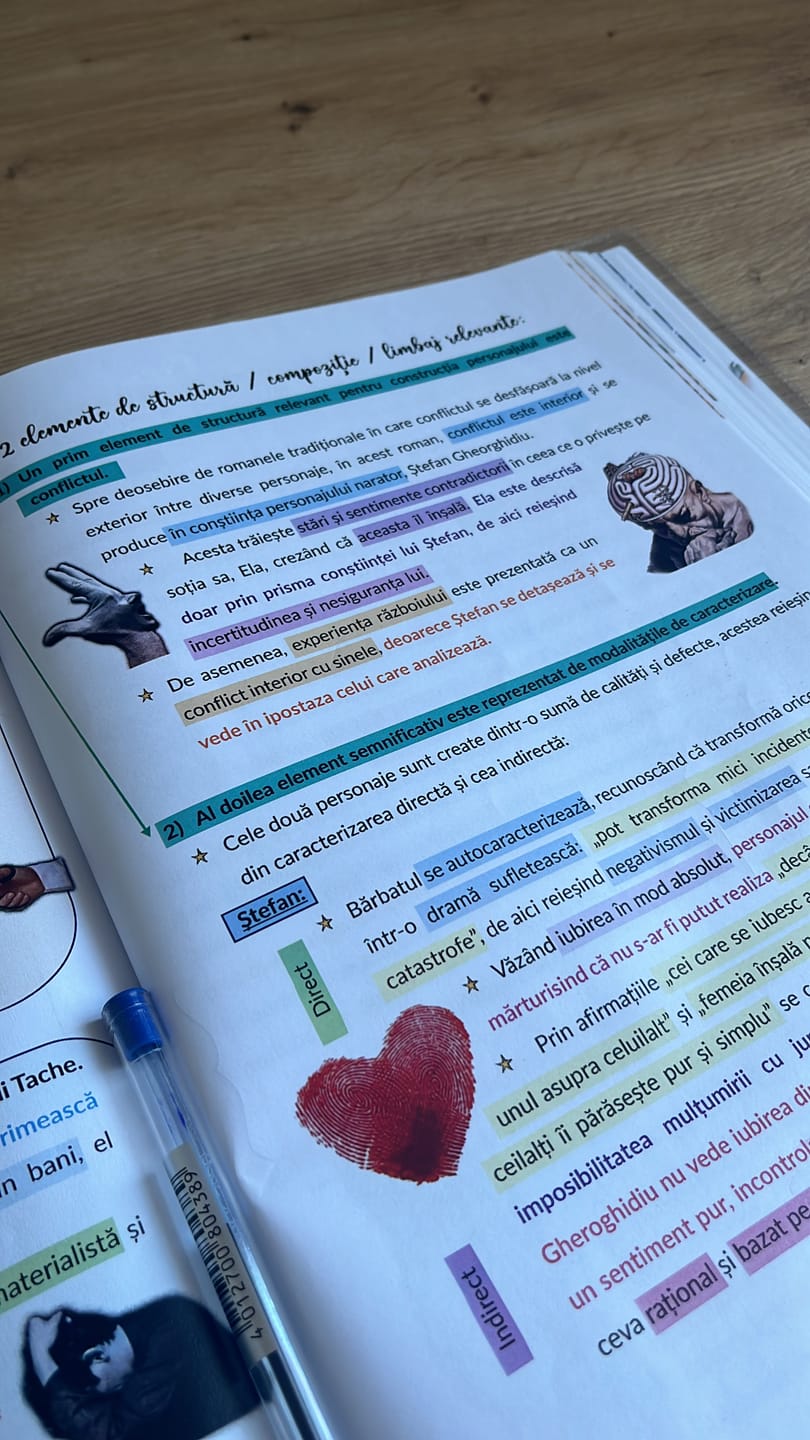 2 elemente de structură / compoziție / limbaj relevante:
1) Un prim element de structură relevant pentru construcția personajului este
conflictul.
Spre deosebire de romanele tradiționale în care conflictul se desfășoară la nivel
exterior între diverse personaje, în acest roman, conflictul este interior și se
produce în conștiința personajului narator, Ștefan Gheorghidiu.
Acesta trăiește stări și sentimente contradictorii în ceea ce o privește pe
soția sa, Ela, crezând că aceasta îl înșală. Ela este descrisă
doar prin prisma conștiinței lui Ștefan, de aici reieșind
incertitudinea și nesiguranța lui.
De asemenea, experiența războiului este prezentată ca un
conflict interior cu sinele, deoarece Ștefan se detașează și se
vede în ipostaza celui care analizează.
2) Al doilea element semnificativ este reprezentat de modalitățile de caracterizare.
Cele două personaje sunt create dintr-o sumă de calități și defecte, acestea
din caracterizarea directă și cea indirectă:
Ștefan:
Bărbatul se autocaracterizează, recunoscând că transformă
într-o dramă sufletească: „pot transforma mici
catastrofe”, de aici reieșind negativismul și victimizarea
Direct
Văzând iubirea în mod absolut, personajul
mărturisind că nu s-ar fi putut realiza
Prin afirmațiile „cei care se iubesc
unul asupra celuilalt” și „femeia înșală
ceilalți îi părăsește pur și simplu” se
imposibilitatea mulțumirii cu
Gheroghidiu nu vede iubirea
un sentiment pur,
ceva rațional și bazat pe
Indirect
Tache.
bani, el
și
4012700804389